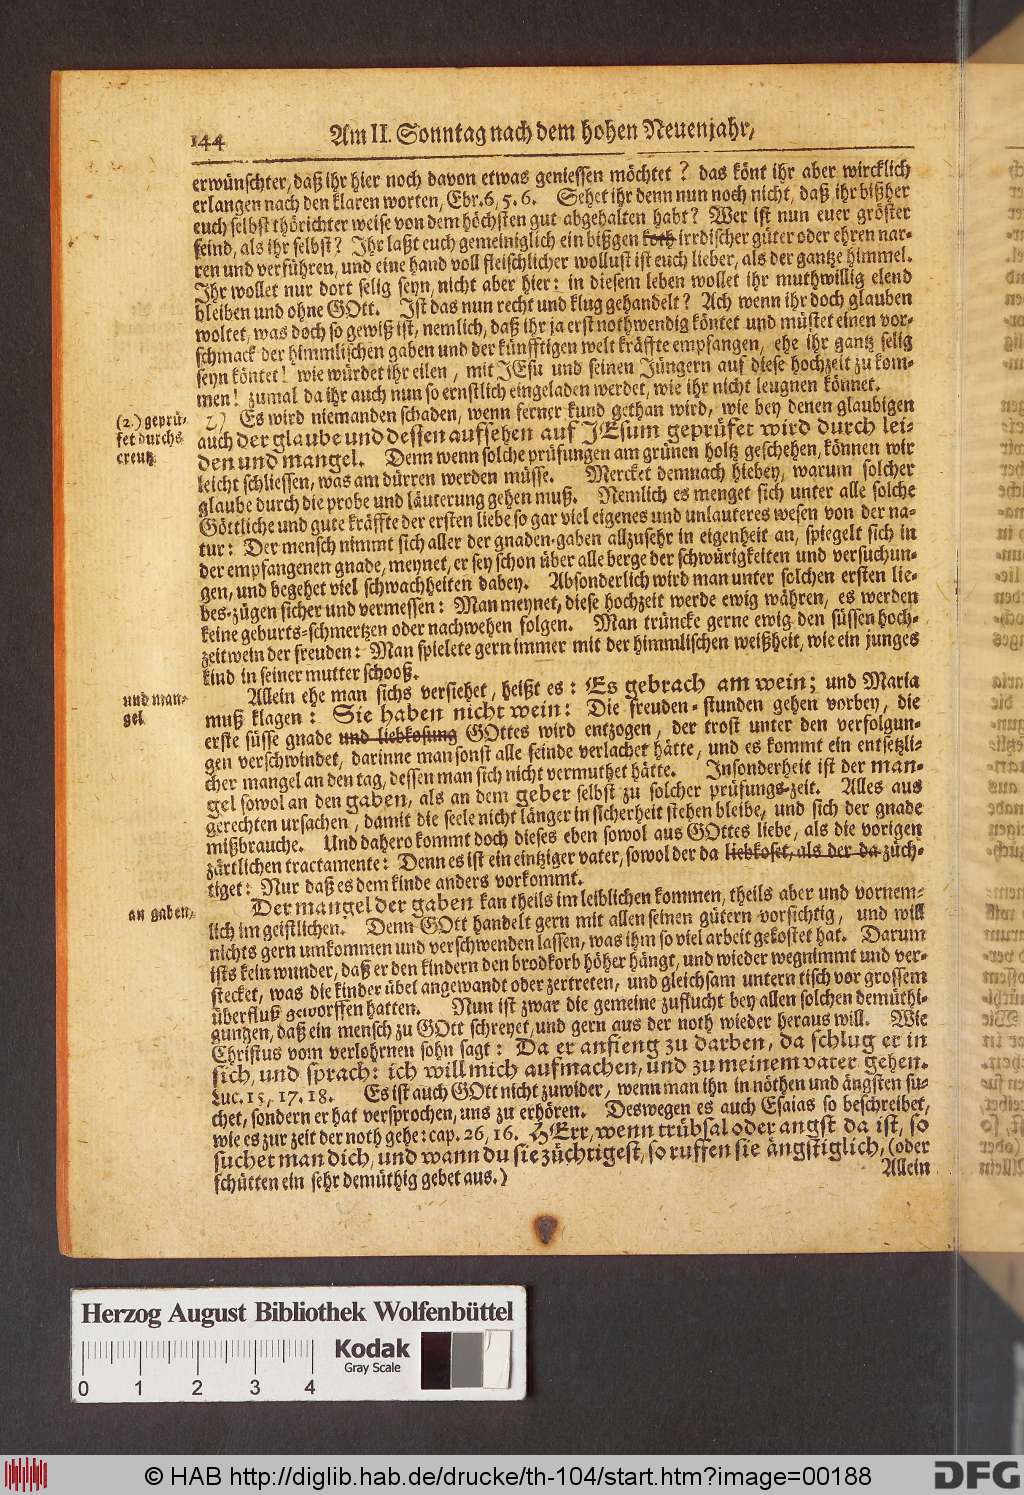 144
Am II. Sonntag nach dem hohen Neuenjahr,
erwünschter, daß ihr hier noch davon etwas geniessen möchtet? das könt ihr aber wircklich
erlangen nach den klaren worten, Ebr. 6, 5. 6. Sehet ihr denn nun noch nicht, daß ihr bißher
euch selbst thörichter weise von dem höchsten gut abgehalten habt? Wer ist nun euer gröster
feind, als ihr selbst? Ihr laßt euch gemeiniglich ein bißgen koth irrdischer güter oder ehren nar-
ren und verführen, und eine hand voll fleischlicher wollust ist euch lieber, als der gantze himmel.
Ihr wollet nur dort selig seyn, nicht aber hier: in diesem leben wollet ihr muthwillig elend
bleiben und ohne GOtt. Ist das nun recht und klug gehandelt? Ach wenn ihr doch glauben
woltet, was doch so gewiß ist, nemlich, daß ihr ja erst nothwendig köntet und müstet einen vor-
schmack der himmlischen gaben und der künfftigen welt kräffte empfangen, ehe ihr gantz selig
seyn köntet! wie würdet ihr eilen, mit JEsu und seinen Jüngern auf diese hochzeit zu kom-
men! zumal da ihr auch nun so ernstlich eingeladen werdet, wie ihr nicht leugnen könnet.
(2.) geprü-
fet durchs
creutz
2) Es wird niemanden schaden, wenn ferner kund gethan wird, wie bey denen glaubigen
auch der glaube und dessen aufsehen auf JEsum geprüfet wird durch lei-
den und mangel. Denn wenn solche prüfungen am grünen holtz geschehen, können wir
leicht schliessen, was am dürren werden müsse. Mercket demnach hiebey, warum solcher
glaube durch die probe und läuterung gehen muß. Nemlich es menget sich unter alle solche
Göttliche und gute kräffte der ersten liebe so gar viel eigenes und unlauteres wesen von der na-
tur: Der mensch nimmt sich aller der gnaden-gaben allzusehr in eigenheit an, spiegelt sich in
der empfangenen gnade, meynet, er sey schon über alle berge der schwürigkeiten und versuchun-
gen, und begehet viel schwachheiten dabey. Absonderlich wird man unter solchen ersten lie-
bes-zügen sicher und vermessen: Man meynet, diese hochzeit werde ewig währen, es werden
keine geburts-schmertzen oder nachwehen folgen. Man trüncke gerne ewig den süssen hoch-
zeitwein der freuden: Man spielete gern immer mit der himmlischen weißheit, wie ein junges
kind in seiner mutter schooß.
und man-
gel
Allein ehe man sichs versiehet, heißt es: Es gebrach am wein; und Maria
muß klagen: Sie haben nicht wein: Die freuden-stunden gehen vorbey, die
erste süsse gnade und liebkosung GOttes wird entzogen, der trost unter den verfolgun-
gen verschwindet, darinne man sonst alle feinde verlachet hätte, und es kommt ein entsetzli-
cher mangel an den tag, dessen man sich nicht vermuthet hätte. Insonderheit ist der man-
gel sowol an den gaben, als an dem geber selbst zu solcher prüfungs-zeit. Alles aus
gerechten ursachen, damit die seele nicht länger in sicherheit stehen bleibe, und sich der gnade
mißbrauche. Und dahero kommt doch dieses eben sowol aus GOttes liebe, als die vorigen
zärtlichen tractamente: Denn es ist ein eintziger vater, sowol der da liebkoset, als der da züch-
tiget: Nur daß es dem kinde anders vorkommt.
an gaben,
Der mangel der gaben kan theils im leiblichen kommen, theils aber und vornem-
lich im geistlichen. Denn GOtt handelt gern mit allen seinen gütern vorsichtig, und will
nichts gern umkommen und verschwenden lassen, was ihm so viel arbeit gekostet hat. Darum
ists kein wunder, daß er den kindern den brodkorb höher hängt, und wieder wegnimmt und ver-
stecket, was die kinder übel angewandt oder zertreten, und gleichsam untern tisch vor grossem
überfluß geworffen hatten. Nun ist zwar die gemeine zuflucht bey allen solchen demüthi-
gungen, daß ein mensch zu GOtt schreyet, und gern aus der noth wieder heraus will. Wie
Christus vom verlohrnen sohn sagt: Da er anfieng zu darben, da schlug er in
sich, und sprach: ich will mich aufmachen, und zu meinem vater gehen.
Luc. 15, 17. 18. Es ist auch GOtt nicht zuwider, wenn man ihn in nöthen und ängsten su-
chet, sondern er hat versprochen, uns zu erhören. Deswegen es auch Esaias so beschreibet,
wie es zur zeit der noth gehe: cap. 26, 16. HErr, wenn trübsal oder angst da ist, so
suchet man dich, und wann du sie züchtigest, so ruffen sie ängstiglich, (oder
schütten ein sehr demüthig gebet aus.)
Allein
Herzog August Bibliothek Wolfenbüttel
Kodak
Gray Scale
0 1 2 3 4
© HAB http://diglib.hab.de/drucke/th-104/start.htm?image=00188
DFG